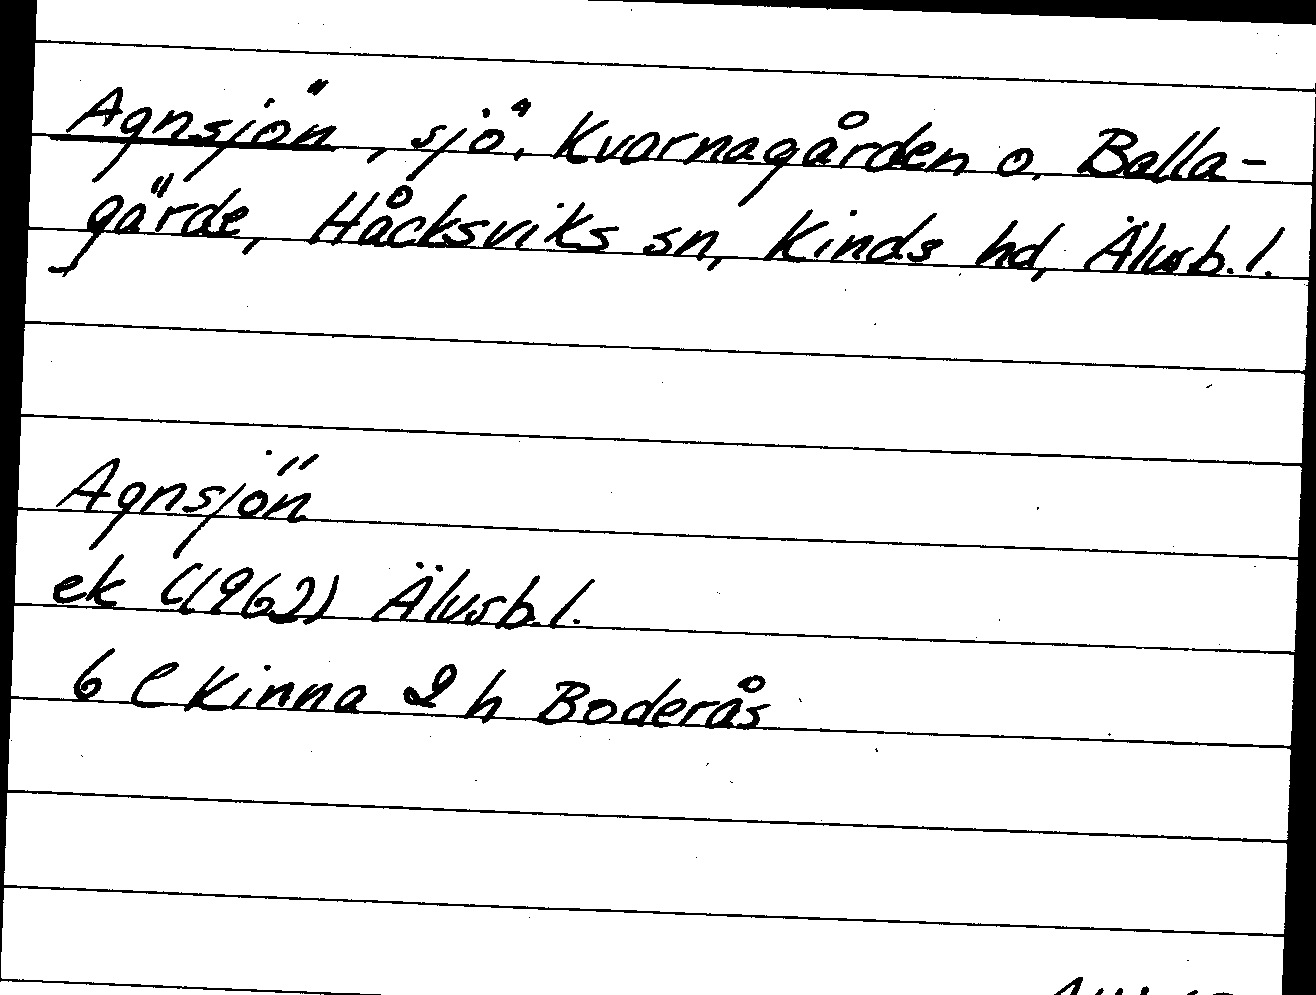 Agnsjön, sjö, Kvarnagården o. Balla-
gärde, Håcksviks sn, Kinds hd, Älvsb. l.
Agnsjön
ek (1962) Älvsb. l.
6 C Kinna 2 h Boderås